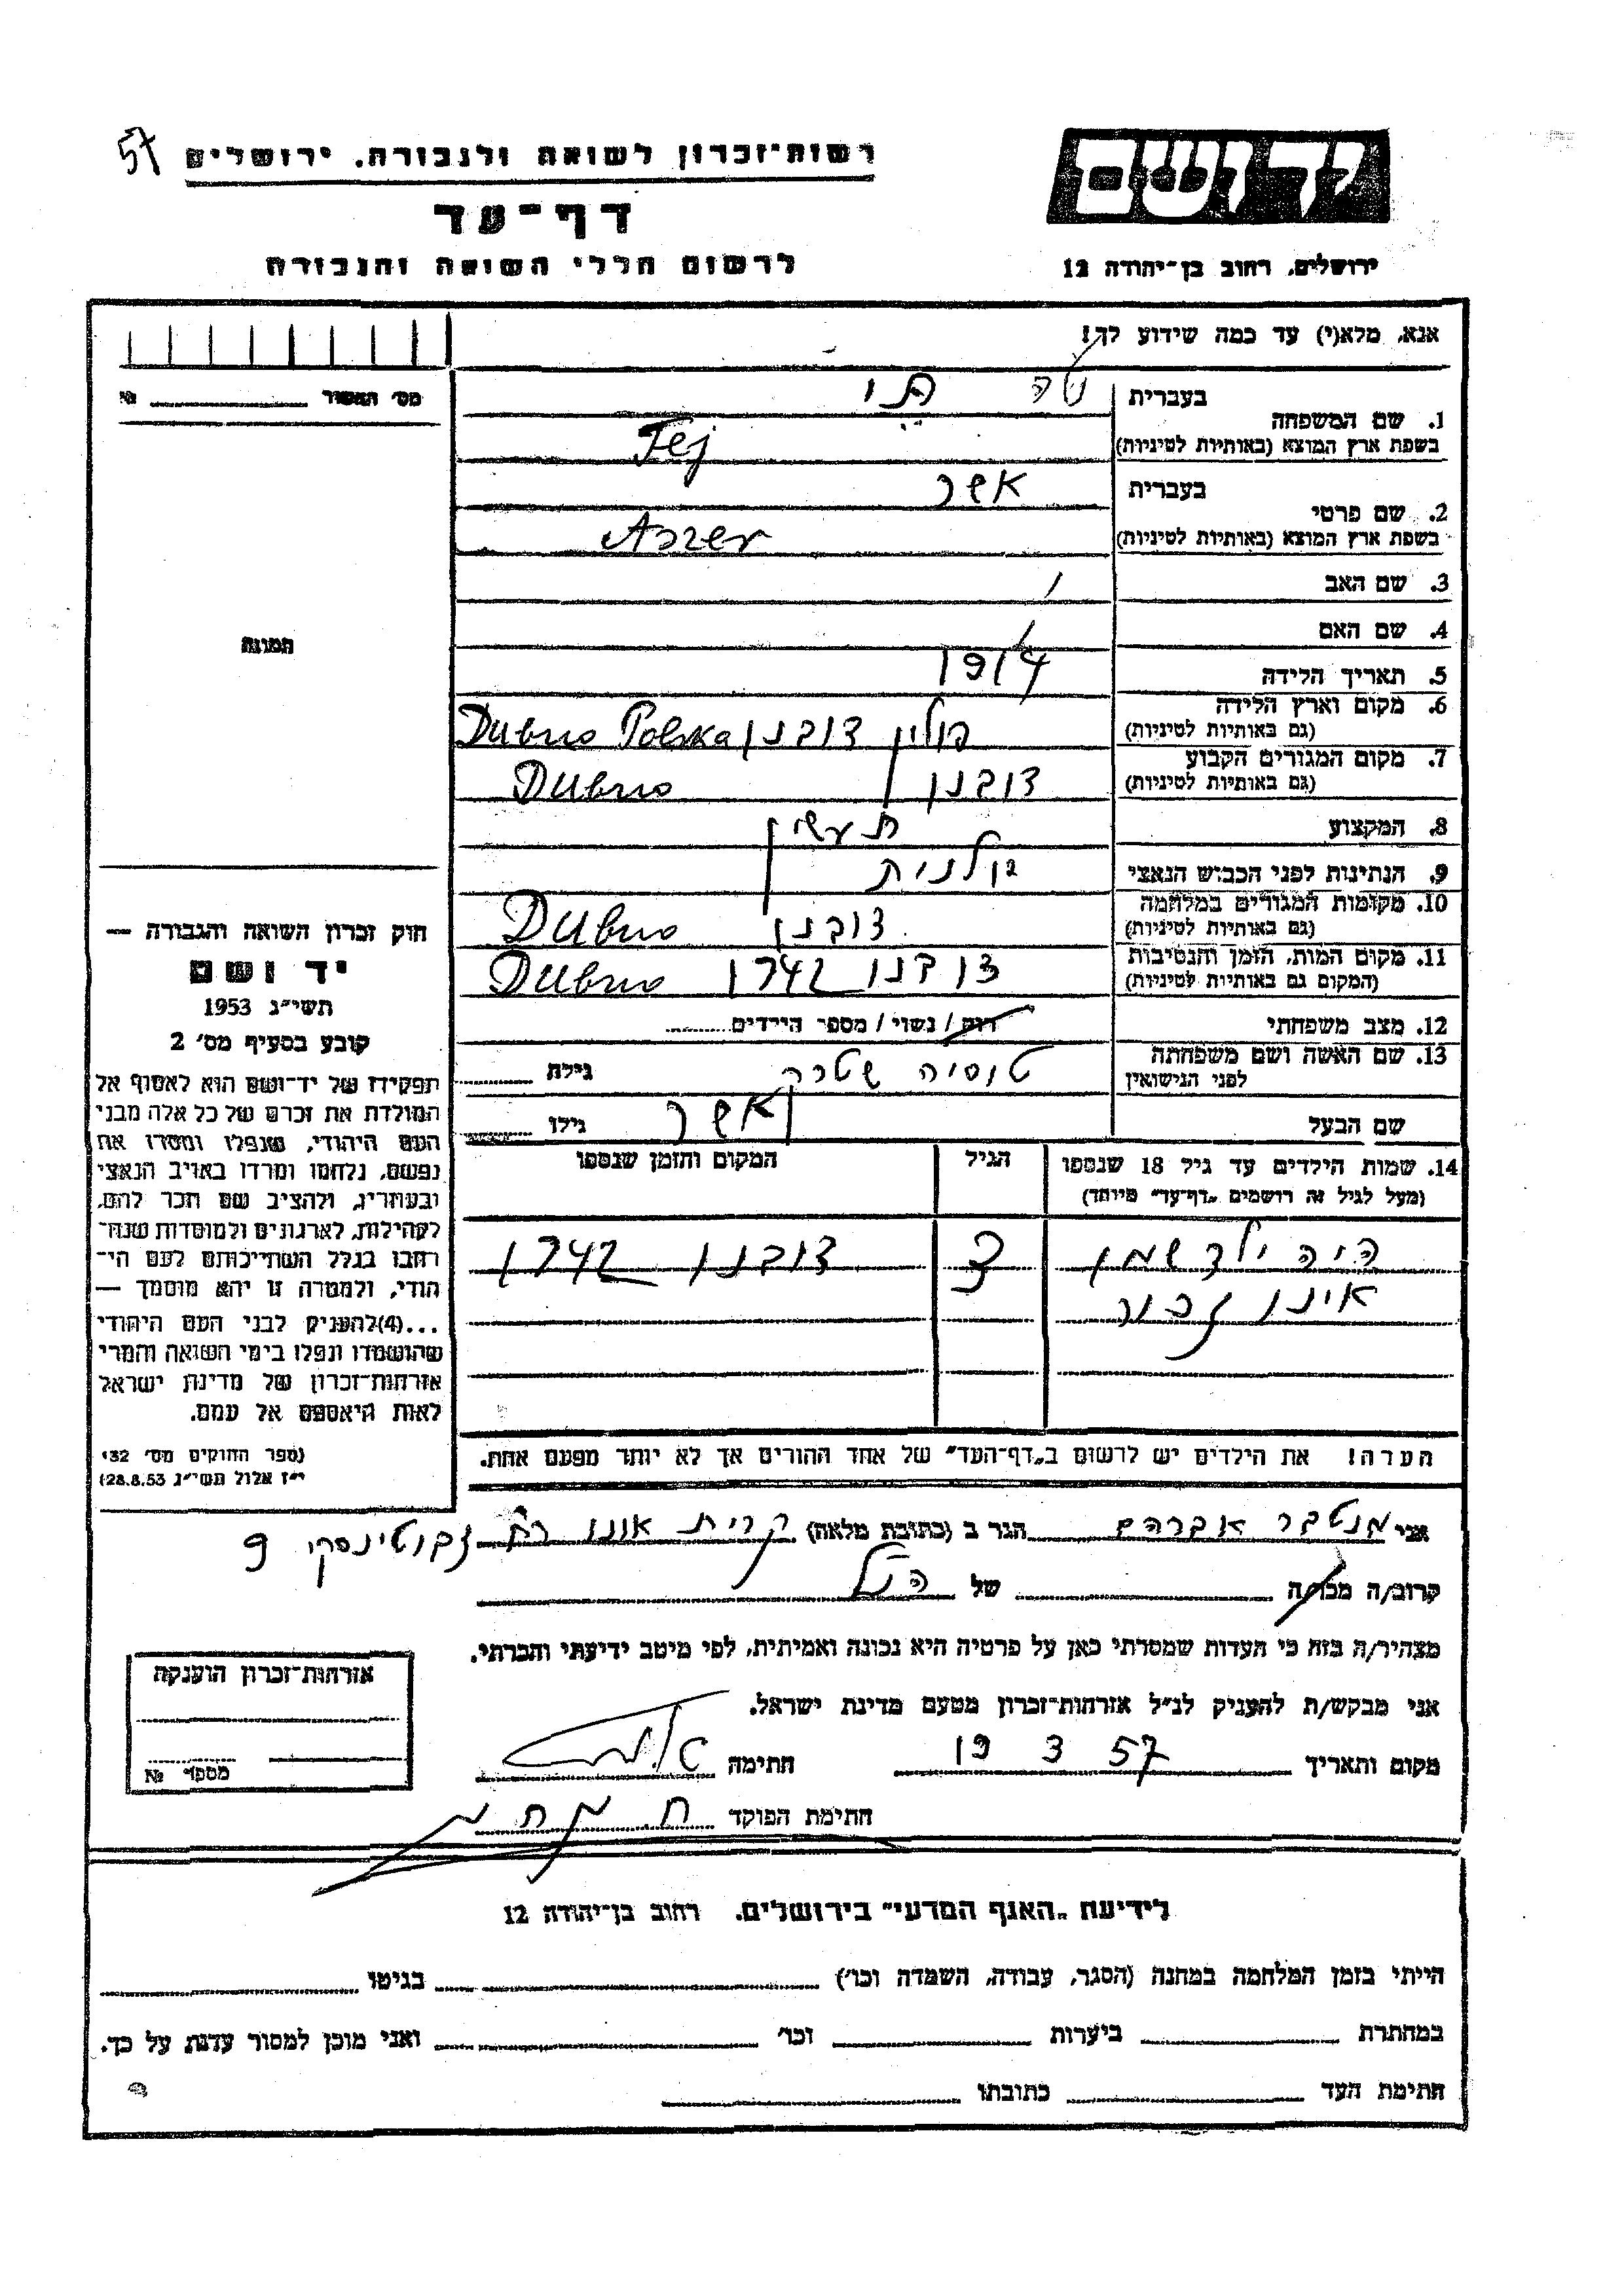 57
רשות־זכרון לשואה ולגבורה. ירושלים
דף־עד
לרשום חללי השואה והגבורה
יד ושם
ירושלים, רחוב בן־יהודה 12
אנא, מלא(י) עד כמה שידוע לך!
מס' האשור № 
1. שם המשפחה
בעברית
בשפת ארץ המוצא (באותיות לטיניות)
Fej
2. שם פרטי
בעברית אשר
בשפת ארץ המוצא (באותיות לטיניות) Aszer
3. שם האב /
4. שם האם /
5. תאריך הלידה 1914
6. מקום וארץ הלידה
(גם באותיות לטיניות)
פולין דובנו Dubno Polska
7. מקום המגורים הקבוע
(גם באותיות לטיניות)
דובנו Dubno
8. המקצוע
9. הנתינות לפני הכבוש הנאצי פולנית
10. מקומות המגורים במלחמה
(גם באותיות לטיניות)
דובנו Dubno
11. מקום המות, הזמן והנסיבות
(המקום גם באותיות לטיניות)
דובנו 1942 Dubno
12. מצב משפחתי רוק / נשוי / מספר הילדים
13. שם האשה ושם משפחתה
לפני הנישואין
טוסיה שטרק גילה
שם הבעל אשר גילו
14. שמות הילדים עד גיל 18 שנספו
(מעל לגיל זה רושמים „דף־עד” מיוחד)
הגיל
המקום והזמן שנספו
היה ילד שמו 3 דובנו 1942
אינו זכור
הערה! את הילדים יש לרשום ב„דף־העד” של אחד ההורים אך לא יותר מפעם אחת.
תמונה
חוק זכרון השואה והגבורה —
יד ושם
תשי״ג 1953
קובע בסעיף מס' 2
תפקידו של יד־ושם הוא לאסוף אל
המולדת את זכרם של כל אלה מבני
העם היהודי, שנפלו ומסרו את
נפשם, נלחמו ומרדו באויב הנאצי
ובעוזריו, ולהציב שם וזכר להם,
לקהילות, לארגונים ולמוסדות שנח־
רבו בגלל השתייכותם לעם הי־
הודי, ולמטרה זו יהא מוסמך —
...(4)להעניק לבני העם היהודי
שהושמדו ונפלו בימי השואה והמרי
אזרחות־זכרון של מדינת ישראל
לאות היאספם אל עמם.
(ספר החוקים מס' 132
י״ז אלול תשי״ג 28.8.53)
אני מנטבר אברהם הגר ב (כתובת מלאה) קרית אונו רח' זבוטינסקי 9
קרוב/ה מכר/ה של הנ״ל
מצהיר/ה בזה כי העדות שמסרתי כאן על פרטיה היא נכונה ואמיתית, לפי מיטב ידיעתי והכרתי.
אני מבקש/ת להעניק לנ״ל אזרחות־זכרון מטעם מדינת ישראל.
מקום ותאריך 19 3 57 חתימה
חתימת הפוקד
אזרחות־זכרון הוענקה
מספר №
לידיעת „האגף המדעי” בירושלים. רחוב בן־יהודה 12
הייתי בזמן המלחמה במחנה (הסגר, עבודה, השמדה וכו') בגיטו
במחתרת ביערות וכו' ואני מוכן למסור עדות על כך.
חתימת העד כתובתו